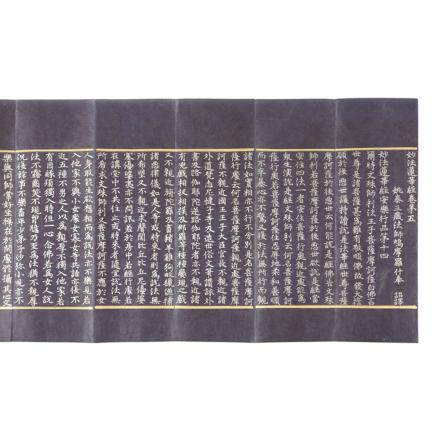 妙法蓮華經卷第五
姚秦三藏法師鳩摩羅什奉 詔譯
妙法蓮華經安樂行品第十四
爾時文殊師利法王子菩薩摩訶薩白佛言
世尊是諸菩薩甚為難有敬順佛故發大誓
願於後惡世護持讀說是法華經世尊菩薩
摩訶薩於後惡世云何能說是經佛告文殊
師利若菩薩摩訶薩於後惡世欲說是經當
安住四法一者安住菩薩行處親近處能為
眾生演說是經文殊師利云何名菩薩摩訶
薩行處若菩薩摩訶薩住忍辱地柔和善順
而不卒暴心亦不驚又復於法無所行而觀
諸法如實相亦不行不分別是名菩薩摩訶
薩行處云何名菩薩摩訶薩親近處菩薩摩
訶薩不親近國王王子大臣官長不親近諸
外道梵志尼揵子等及造世俗文筆讚詠外
書及路伽耶陀逆路伽耶陀者亦不親近諸
有兇戲相扠相撲及那羅等種種變現之戲
又不親近旃陀羅及畜猪羊雞狗畋獵漁捕
諸惡律儀如是人等或時來者則為說法無
所悕望又不親近求聲聞比丘比丘尼優婆
塞優婆夷亦不問訊若於房中若經行處若
在講堂中不共住止或時來者隨宜說法無
所悕求文殊師利又菩薩摩訶薩不應於女
人身取能生欲想相而為說法亦不樂見若
入他家不與小女處女寡女等共語亦復不
近五種不男之人以為親厚不獨入他家若
有因緣須獨入時但一心念佛若為女人說
法不露齒笑不現胸臆乃至為法猶不親厚
況復餘事不樂畜年少弟子沙彌小兒亦不
樂與同師常好坐禪在於閑處修攝其心文